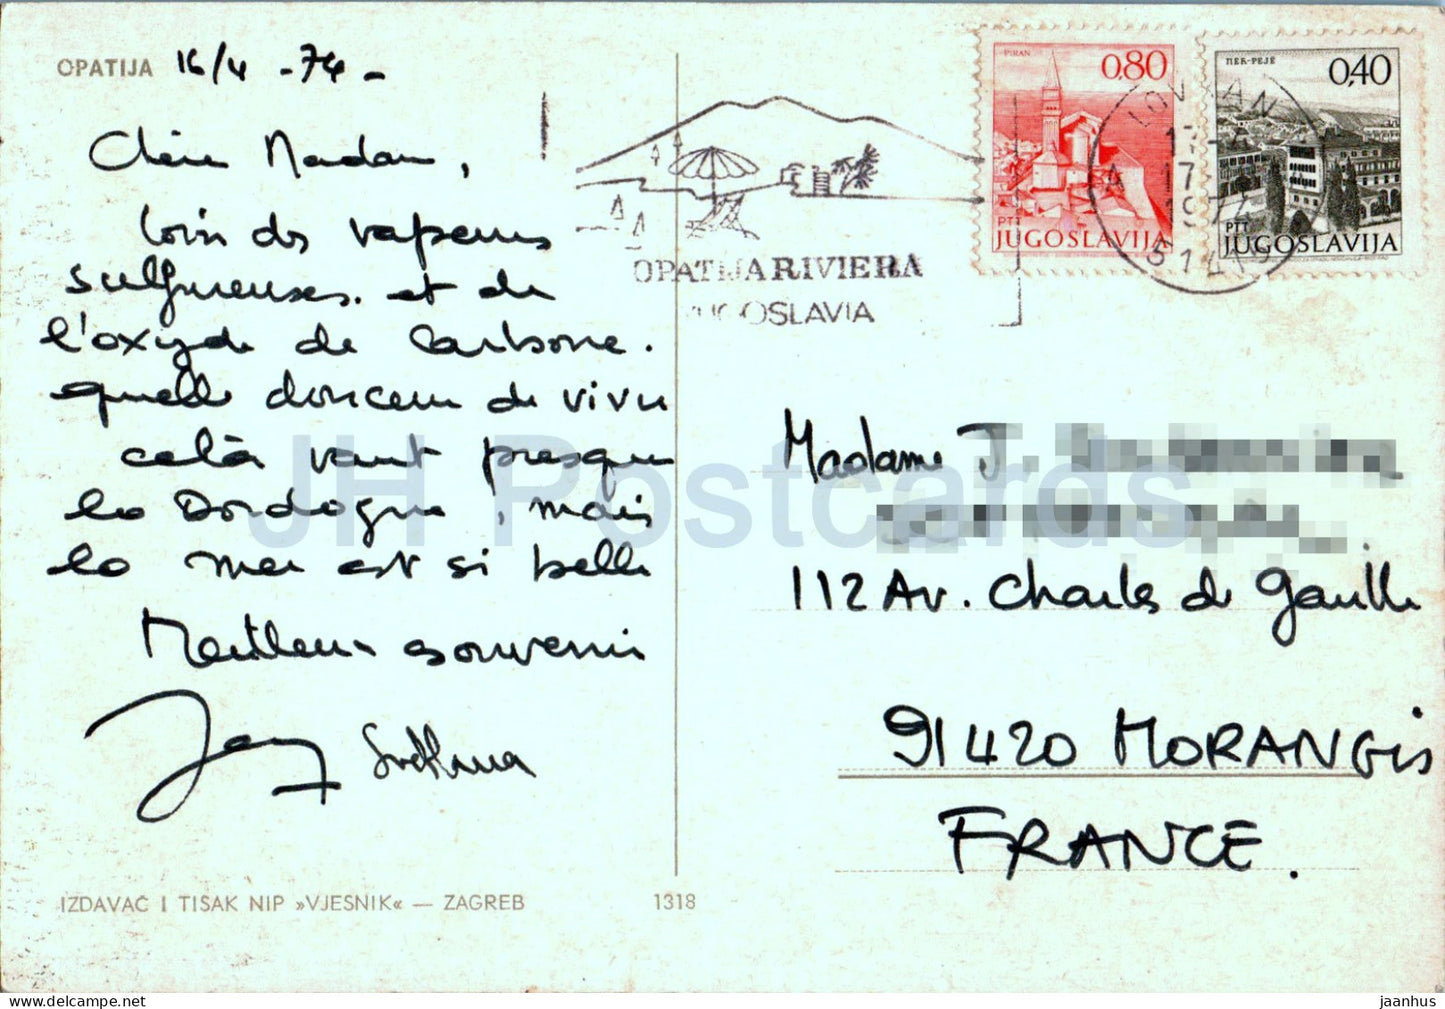 OPATIJA 16/4 - 74 -
Chère Madame,
loin des vapeurs
sulfureuses. et de
l'oxyde de Carbone.
quelle douceur de vivre
celà vaut presque
la Dordogne, mais
la mer est si belle
Meilleurs souvenirs
Svetlana
IZDAVAČ I TISAK NIP »VJESNIK« — ZAGREB 1318
OPATIJA RIVIERA
JUGOSLAVIA
PIRAN
0,80
PTT
JUGOSLAVIJA
ПЕЋ-PEJË
0,40
PTT
JUGOSLAVIJA
LOVRAN
17
1974
51415
Madame J.
112 Av. Charles de Gaulle
91420 MORANGIS
FRANCE.
JH Postcards
delcampe.net
jaanhus